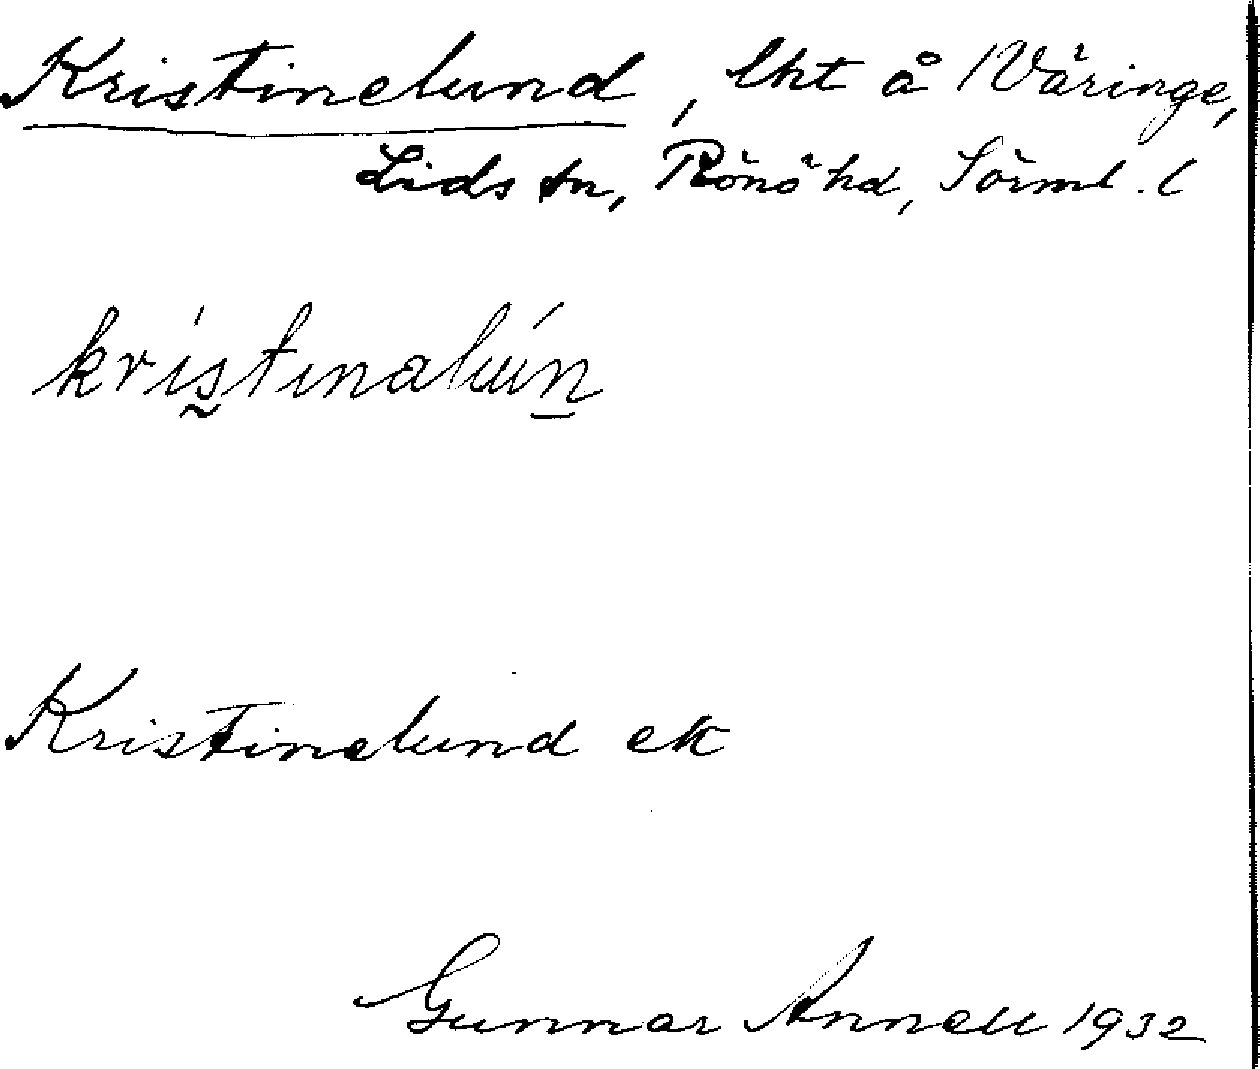 Kristinelund, lht å /Väringe,
Lids sn, Rönö hd, Sörml. l
krístinalún
Kristinelund ek
Gunnar Annell 1932